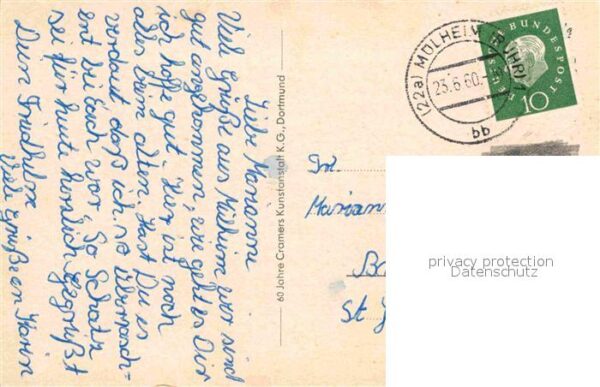 Liebe Mariann
Viel Grüße aus Mülheim wir sind
gut angekommen, wie geht es Dir
ich hoffe gut. Hier ist noch
alles beim alten. Hast Du es
verdaut daß ich so überrasch=
ent bei euch war. So Schatz
sei für heute herzlich gegrüßt
Dein Friedhelm
Viele Grüße von Karin
60 Jahre Cramers Kunstanstalt K.G., Dortmund
(22a) MÜLHEIM (RUHR) 1
23.6.60.
bb
DEUTSCHE BUNDESPOST
10
Frl.
Mariann
St.
privacy protection
Datenschutz